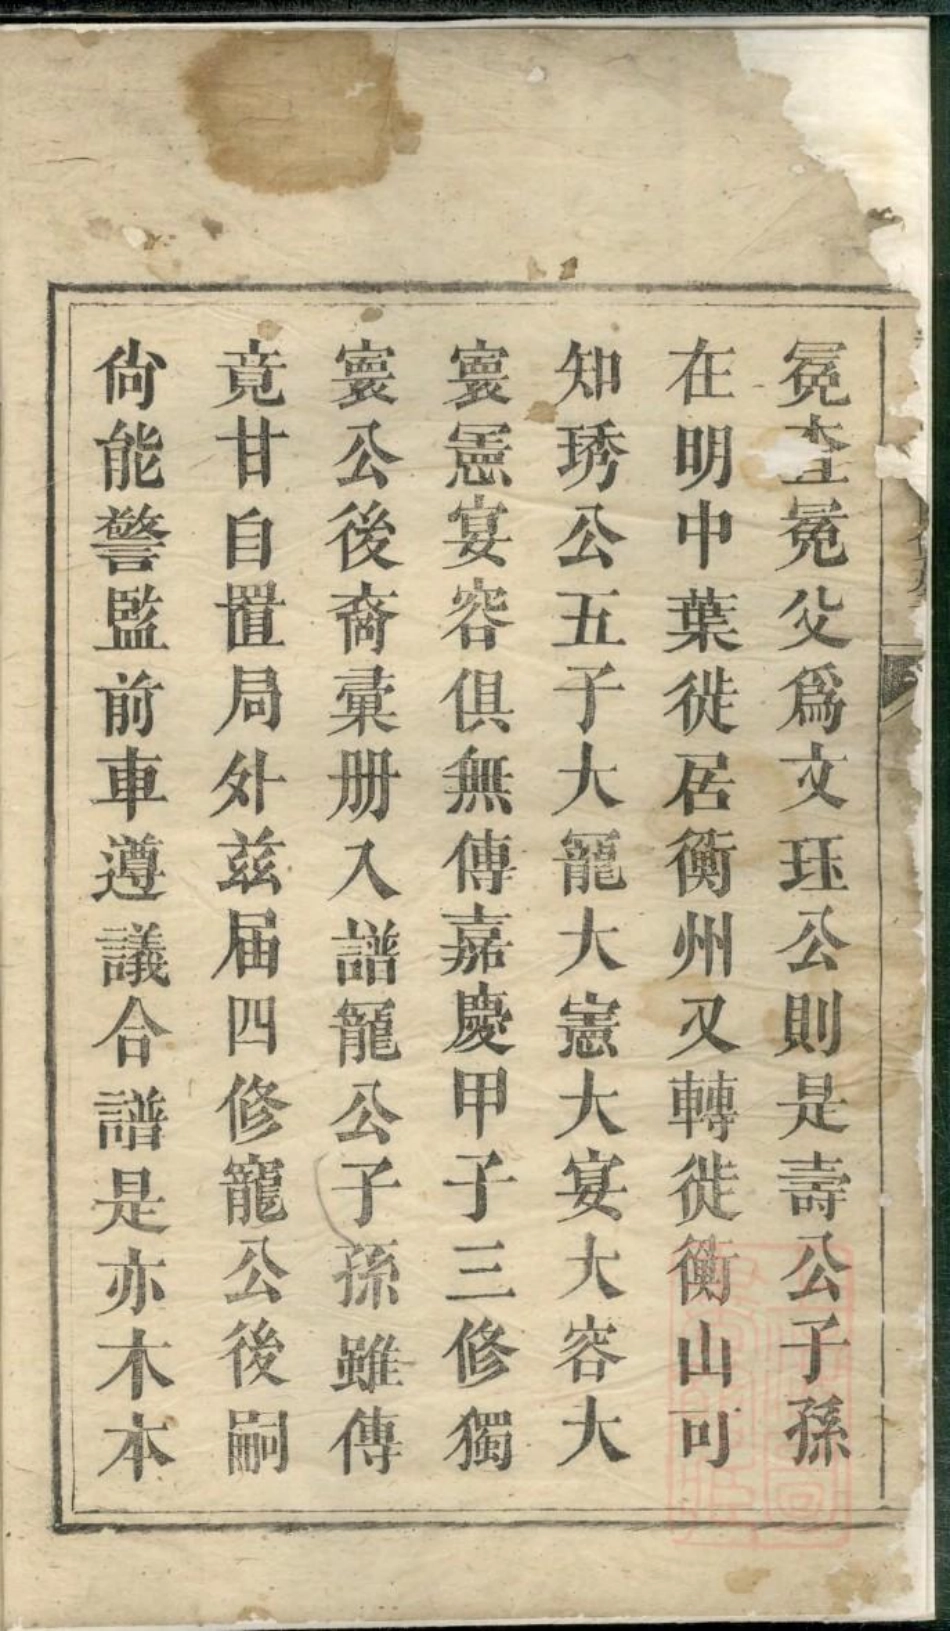 冕查冕父爲文珏公則是壽公子孫
在明中葉徙居衡州又轉徙衡山可
知琇公五子大寵大憲大宴大容大
寰憲宴容俱無傳嘉慶甲子三修獨
寰公後裔彙册入譜寵公子孫雖傳
竟甘自置局外兹届四修寵公後嗣
尙能警監前車遵議合譜是亦木本